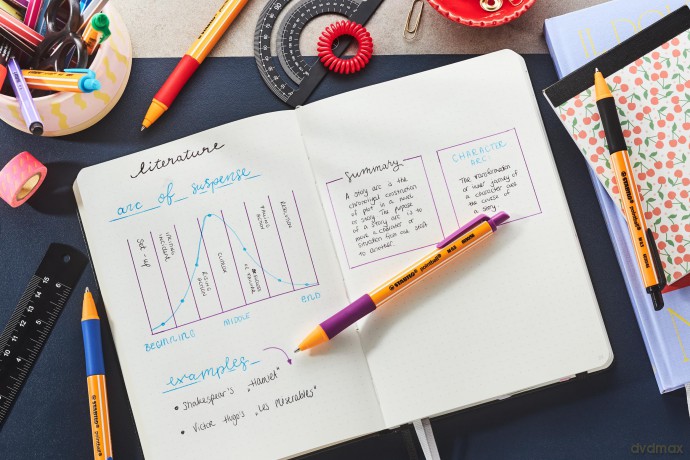 literature
arc of suspense
Set-up
INCITING INCIDENT
RISING ACTION
CLIMAX
FALLING ACTION
RESOLUTION
BEGINNING
MIDDLE
END
examples
• Shakespear's „Hamlet"
• Victor Hugo's „Les Misérables"
Summary
A story arc is the
chronological construction
of plot in a novel
or story. The purpose
of a story arc is to
move a character or
situation from one state
to another.
CHARACTER
ARC
The transformation
or inner journey of
a character over
the course of
a story.
STABILO pointball
STABILO pointball
STABILO
dvdmax